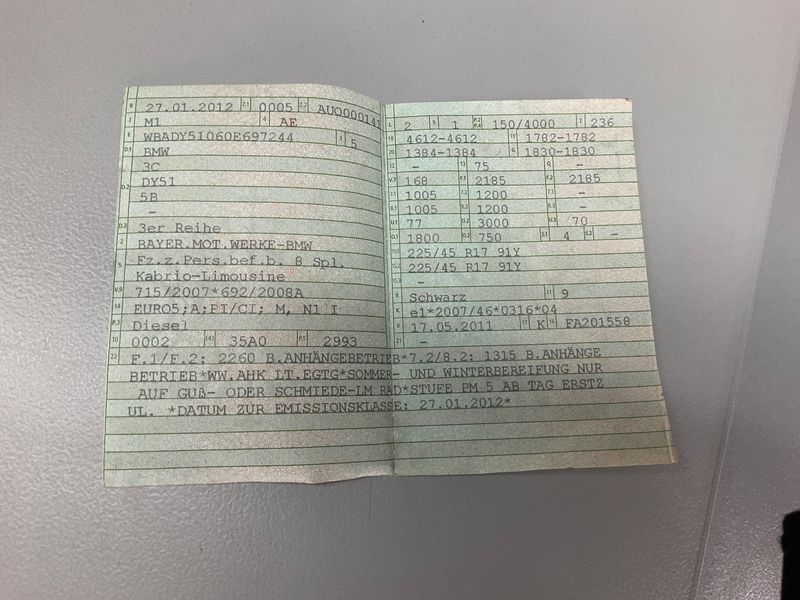 B 27.01.2012 2.1 0005 2.2 AUO000141
J M1 4 AE
E WBADY51060E697244 3 5
D.1 BMW
3C
D.2 DY51
5B
-
D.3 3er Reihe
2 BAYER.MOT.WERKE-BMW
5 Fz.z.Pers.bef.b. 8 Spl.
Kabrio-Limousine
V.9 715/2007*692/2008A
14 EURO5;A;PI/CI; M, N1 I
P.3 Diesel
10 0002 14.1 35A0 P.1 2993
L 2 9 1 P.2 P.4 150/4000 T 236
18 4612-4612 19 1782-1782
20 1384-1384 G 1830-1830
12 - 13 75 Q -
V.7 168 F.1 2185 F.2 2185
7.1 1005 7.2 1200 7.3 -
8.1 1005 8.2 1200 8.3 -
U.1 77 U.2 3000 U.3 70
O.1 1800 O.2 750 S.1 4 S.2 -
15.1 225/45 R17 91Y
15.2 225/45 R17 91Y
15.3 -
R Schwarz 11 9
K e1*2007/46*0316*04
6 17.05.2011 17 K 16 FA201558
21 -
22 F.1/F.2: 2260 B.ANHÄNGEBETRIEB*7.2/8.2: 1315 B.ANHÄNGE
BETRIEB*WW.AHK LT.EGTG*SOMMER- UND WINTERBEREIFUNG NUR
AUF GUß- ODER SCHMIEDE-LM RAD*STUFE PM 5 AB TAG ERSTZ
UL. *DATUM ZUR EMISSIONSKLASSE: 27.01.2012*